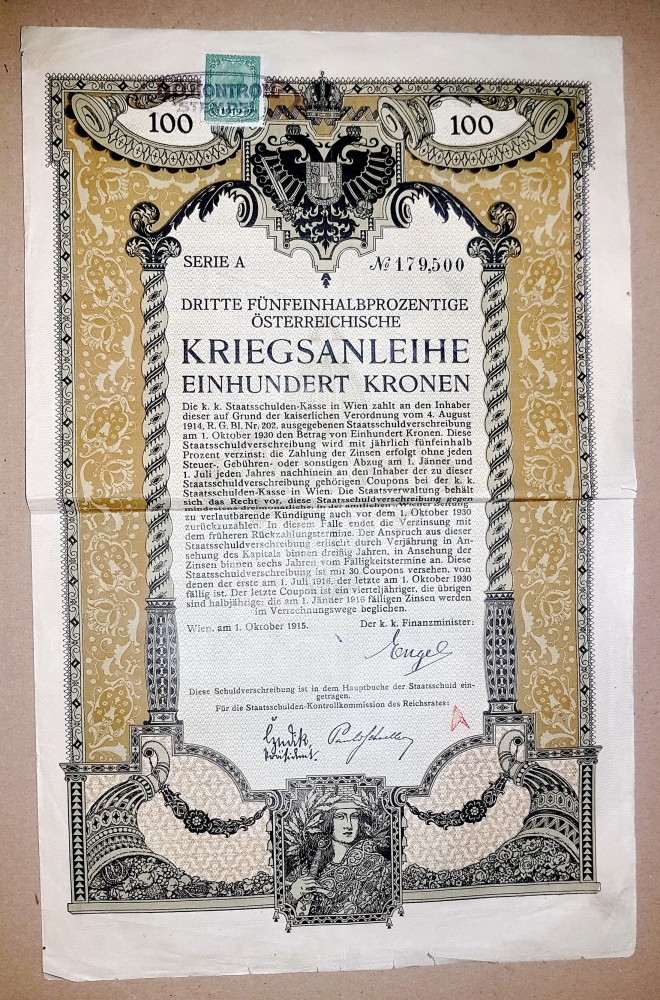 KONTROLL
100
100
SERIE A
№ 179,500
DRITTE FÜNFEINHALBPROZENTIGE
ÖSTERREICHISCHE
KRIEGSANLEIHE
EINHUNDERT KRONEN
Die k. k. Staatsschulden-Kasse in Wien zahlt an den Inhaber
dieser auf Grund der kaiserlichen Verordnung vom 4. August
1914, R. G. Bl. Nr. 202, ausgegebenen Staatsschuldverschreibung
am 1. Oktober 1930 den Betrag von Einhundert Kronen. Diese
Staatsschuldverschreibung wird mit jährlich fünfeinhalb
Prozent verzinst; die Zahlung der Zinsen erfolgt ohne jeden
Steuer-, Gebühren- oder sonstigen Abzug am 1. Jänner und
1. Juli jeden Jahres nachhinein an den Inhaber der zu dieser
Staatsschuldverschreibung gehörigen Coupons bei der k. k.
Staatsschulden-Kasse in Wien. Die Staatsverwaltung behält
sich das Recht vor, diese Staatsschuldverschreibung gegen
mindestens dreimonatliche, in der amtlichen „Wiener Zeitung“
zu verlautbarende Kündigung auch vor dem 1. Oktober 1930
zurückzuzahlen. In diesem Falle endet die Verzinsung mit
dem früheren Rückzahlungstermine. Der Anspruch aus dieser
Staatsschuldverschreibung erlischt durch Verjährung in An-
sehung des Kapitals binnen dreißig Jahren, in Ansehung der
Zinsen binnen sechs Jahren vom Fälligkeitstermine an. Diese
Staatsschuldverschreibung ist mit 30 Coupons versehen, von
denen der erste am 1. Juli 1916, der letzte am 1. Oktober 1930
fällig ist. Der letzte Coupon ist ein vierteljähriger, die übrigen
sind halbjährige; die am 1. Jänner 1916 fälligen Zinsen werden
im Verrechnungswege beglichen.
Wien, am 1. Oktober 1915.
Der k. k. Finanzminister:
Engel
Diese Schuldverschreibung ist in dem Hauptbuche der Staatsschuld ein-
getragen.
Für die Staatsschulden-Kontrollkommission des Reichsrates:
A
Präsident.